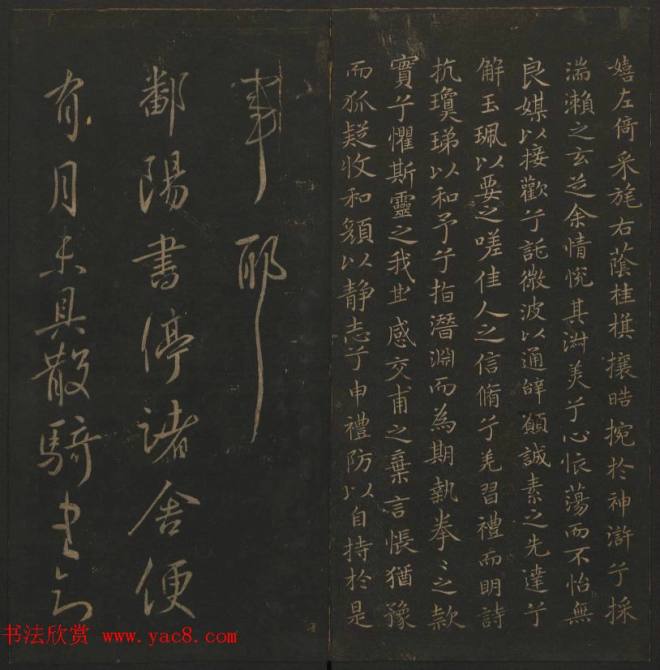 嬉左倚采旄右蔭桂棋攘晧捥於神滸兮採
湍瀨之玄芝余情悅其淑美兮心悵蕩而不怡無
良媒以接歡兮託微波以通辭願誠素之先達兮
解玉珮以要之嗟佳人之信脩兮羌習禮而明詩
抗瓊珶以和予兮指潛淵而為期執拳〻之款
實兮懼斯靈之我欺感交甫之棄言悵猶豫
而狐疑收和顏以靜志兮申禮防以自持於是
事耶
鄱陽書停諸舍便
有月未具散騎書
书法欣赏 www.yac8.com